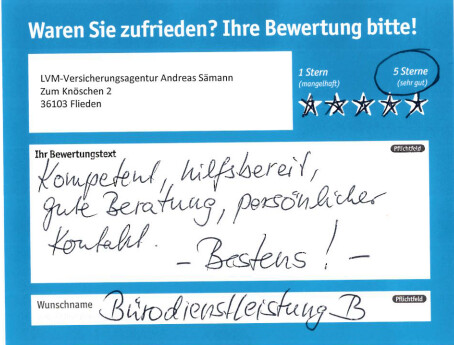 Waren Sie zufrieden? Ihre Bewertung bitte!
LVM-Versicherungsagentur Andreas Sämann
Zum Knöschen 2
36103 Flieden
1 Stern
(mangelhaft)
5 Sterne
(sehr gut)
Ihr Bewertungstext
Pflichtfeld
Kompetent, hilfsbereit,
gute Beratung, persönlicher
Kontakt.
- Bestens! -
Wunschname
Pflichtfeld
Bürodienstleistung B